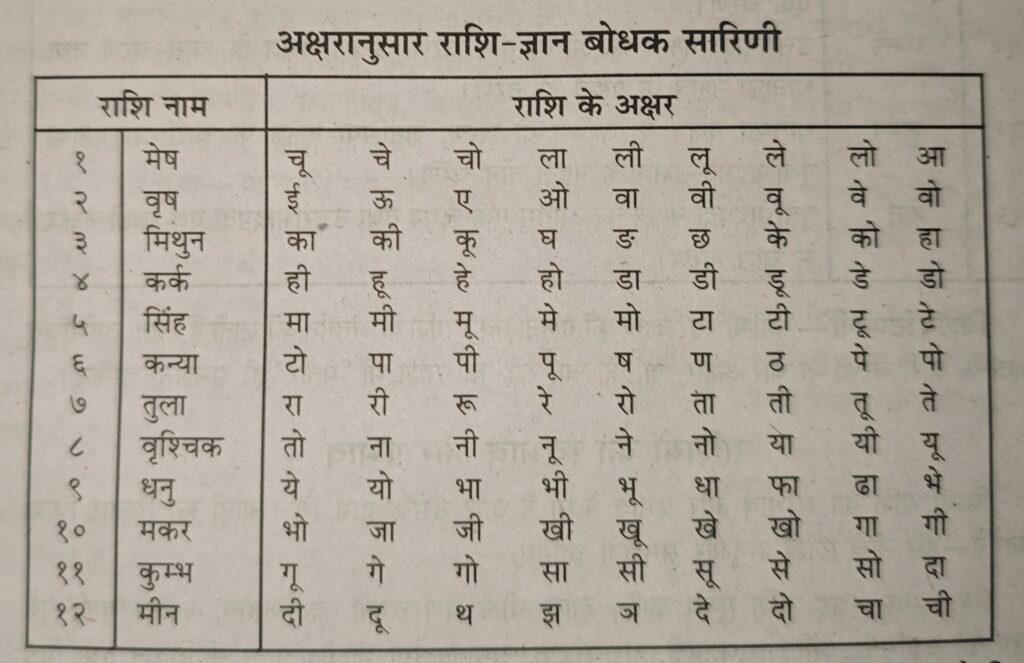 अक्षरानुसार राशि-ज्ञान बोधक सारिणी
राशि नाम राशि के अक्षर
१ मेष चू चे चो ला ली लू ले लो आ
२ वृष ई ऊ ए ओ वा वी वू वे वो
३ मिथुन का की कू घ ङ छ के को हा
४ कर्क ही हू हे हो डा डी डू डे डो
५ सिंह मा मी मू मे मो टा टी टू टे
६ कन्या टो पा पी पू ष ण ठ पे पो
७ तुला रा री रू रे रो ता ती तू ते
८ वृश्चिक तो ना नी नू ने नो या यी यू
९ धनु ये यो भा भी भू धा फा ढा भे
१० मकर भो जा जी खी खू खे खो गा गी
११ कुम्भ गू गे गो सा सी सू से सो दा
१२ मीन दी दू थ झ ञ दे दो चा ची